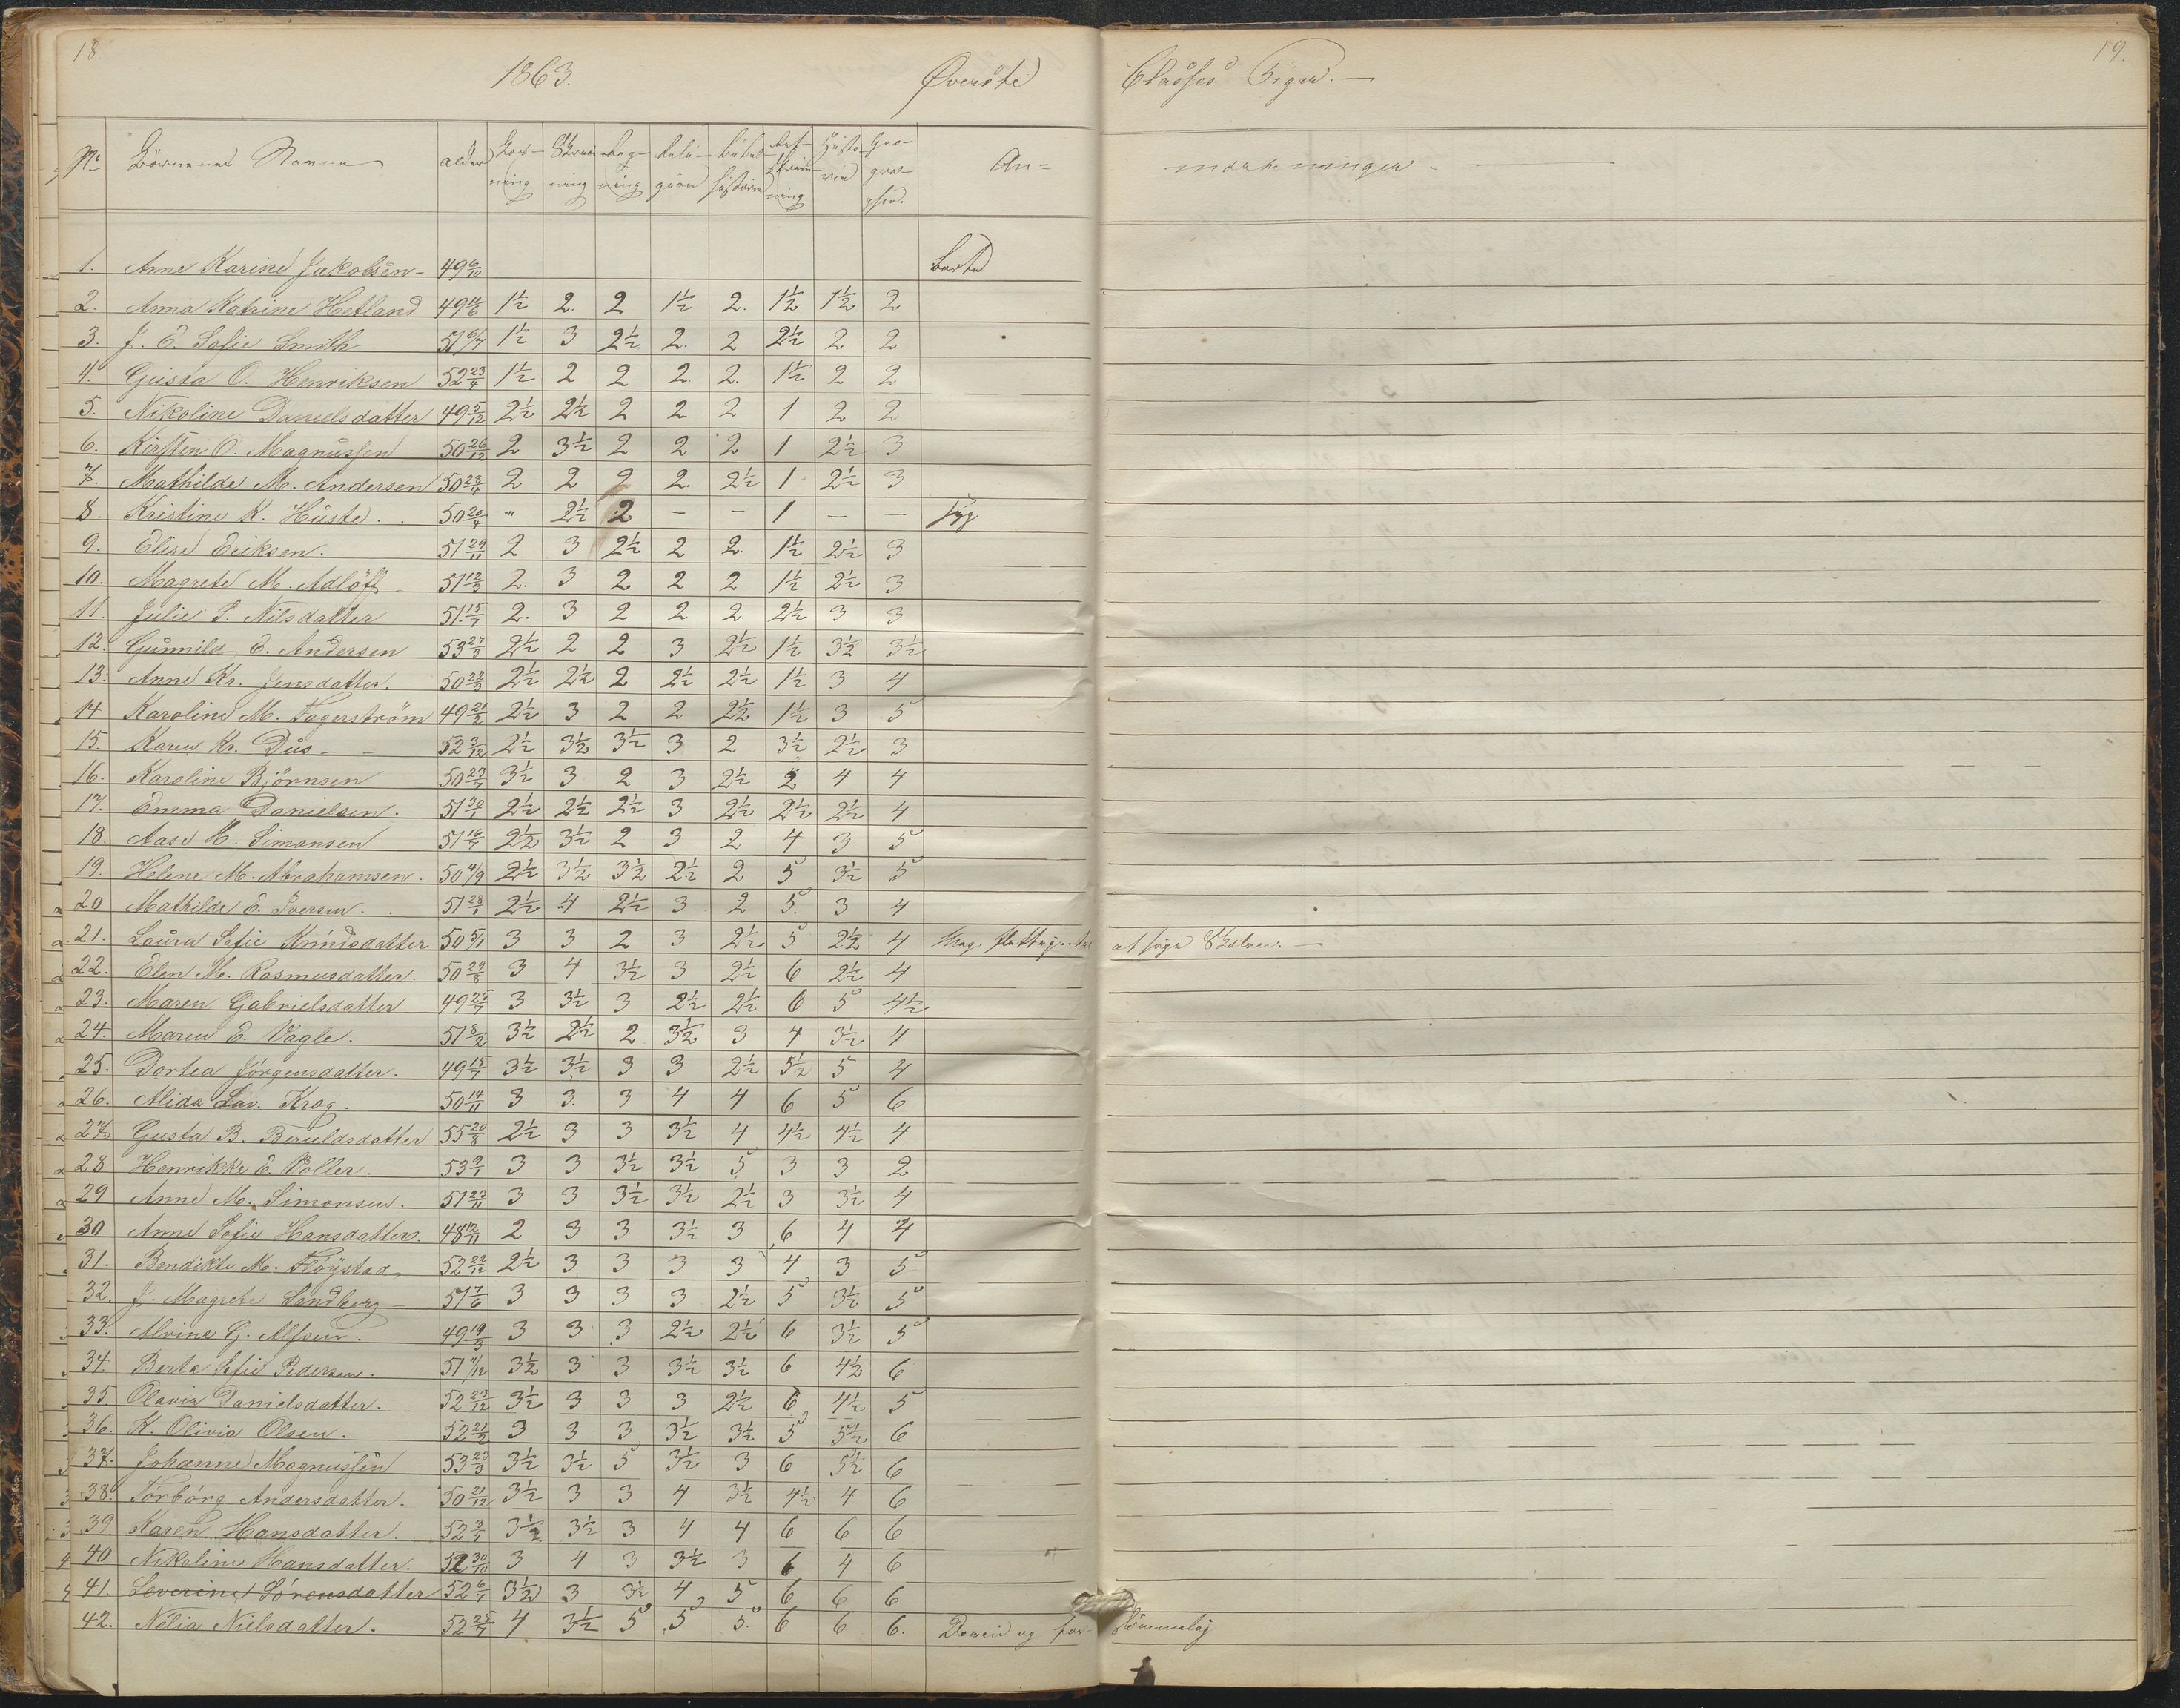 18.
1863.
Øverste Classes Piger. —
19.
No Börnenes Navne alder Religion Historie An= mærkninger.
1. Anne Karine Jakobsen - 49 6/10 Borte
2. Anna Katrine Hetland 49 11/6 1½ 2. 2 1½ 2. 1½ 1½ 2
3. J. E. Sofie Smith 51 6/7 1½ 3 2½ 2. 2 2½ 2 2
4. Geista O. Henriksen 52 23/4 1½ 2 2 2. 2. 1½ 2 2
5. Nikoline Danielsdatter 49 5/12 2½ 2½ 2 2 2 1 2 2
6. Kirsten O. Magnussen 50 26/12 2 3½ 2 2 2 1 2½ 3
7. Mathilde M. Andersen 50 28/4 2 2 2 2. 2½ 1 2½ 3
8. Kristine K. Huste. 50 20/4 " 2½ 2 — — 1 — — syg
9. Elise Eriksen. 51 29/11 2 3 2½ 2 2. 1½ 2½ 3
10. Magrete M. Adlöff 51 12/3 2. 3 2 2 2 1½ 2½ 3
11. Julie S. Nilsdatter 51 15/7 2. 3 2 2 2. 2½ 3 3
12. Gunnild E. Andersen 53 27/3 2½ 2 2 3 2½ 1½ 3½ 3½
13. Anne Kr. Jensdatter. 50 22/3 2½ 2½ 2 2½ 2½ 1½ 3 4
14 Karoline M. Fagerström 49 21/2 2½ 3 2 2 2½ 1½ 3 5
15. Karen Kr. Dus — 52 3/12 2½ 3½ 3½ 3 2 3½ 2½ 3
16. Karoline Björnsen 50 23/7 3½ 3 2 3 2½ 2 4 4
17. Emma Danielsen. 51 30/1 2½ 2½ 2½ 3 2½ 2½ 2½ 4
18. Aase H. Simonsen 51 16/7 2½ 3½ 2 3 2 4 3 5
19. Helene M. Abrahamsen. 50 4/9 2½ 3½ 3½ 2½ 2 5 3½ 5
20 Mathilde E. Iversen. 51 28/1 2½ 4 2½ 3 2 5. 3 4
21. Laura Sofie Knudsdatter 50 5/11 3 3 2 3 2½ 5 2½ 4
22. Elen M. Rasmusdatter. 50 29/8 3 4 3½ 3 2½ 6 2½ 4
23. Maren Gabrielsdatter 49 25/7 3 3½ 3 2½ 2½ 6 5 4½
24. Maren E. Vagle. 51 8/2 3½ 2½ 2 3½ 3 4 3½ 4
25. Dortea Jörgensdatter. 49 15/7 3½ 3½ 3 3 2½ 5½ 5 4
26. Alida Lav. Krog. 50 14/11 3 3. 3 4 4 6 5 6
27. Gusta B. Beruldsdatter 55 20/8 2½ 3 3 3½ 4 4½ 4½ 4
28 Henrikke E. Voller. 53 9/1 3 3 3½ 3½ 5 3 3 2
29 Anne M. Simonsen. 51 27/11 3 3 3½ 3½ 2½ 3 3½ 4
30 Anne Sofie Hansdatter. 48 12/11 2 3 3 3½ 3 6 4 4
31. Bendikte M. Flöystad 52 22/12 2½ 3 3 3 3 4 3 5
32. J. Magrete Landberg 51 7/6 3 3 3 3 2½ 5 3½ 5
33. Alvine G. Alfsen. 49 19/3 3 3 3 2½ 2½ 6 3½ 5
34. Berta Sofie Pedersen. 51 11/12 3½ 3 3 3½ 3½ 6 4½ 6
35 Olavia Danielsdatter. 52 27/12 3½ 3 3 3 2½ 6 4½ 5
36. K. Olivia Olsen. 52 21/2 3 3 3 3½ 3½ 5 5½ 6
37. Johanne Magnussen 53 23/3 3½ 3½ 5 3½ 3 6 5½ 6
38. Torborg Andersdatter. 50 21/12 3½ 3 3 4 3½ 4½ 4 6
39 Karen Hansdatter. 52 3/7 3½ 3½ 3 4 4 6 6 6
40 Nikoline Hansdatter. 52 30/10 3 4 3 3½ 3 6 4 6
41. Severine Sörensdatter 52 6/7 3½ 3 3½ 4 5 6 6 6
42. Nelia Nielsdatter. 52 25/7 4 3½ 5 5 5. 6 6 6. og